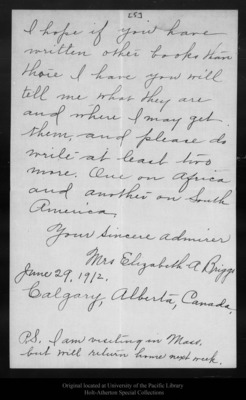 [5]
I hope if you have
written other books than
those I have you will
tell me what they are
and where I may get
them, and please do
write at least two
more. One on Africa
and another on South
America.
Your sincere admirer
Mrs Elizabeth A Briggs
June 29, 1912.
Calgary, Alberta, Canada.
P.S. I am visiting in Mass.
but will return home next week.
Original located at University of the Pacific Library
Holt-Atherton Special Collections